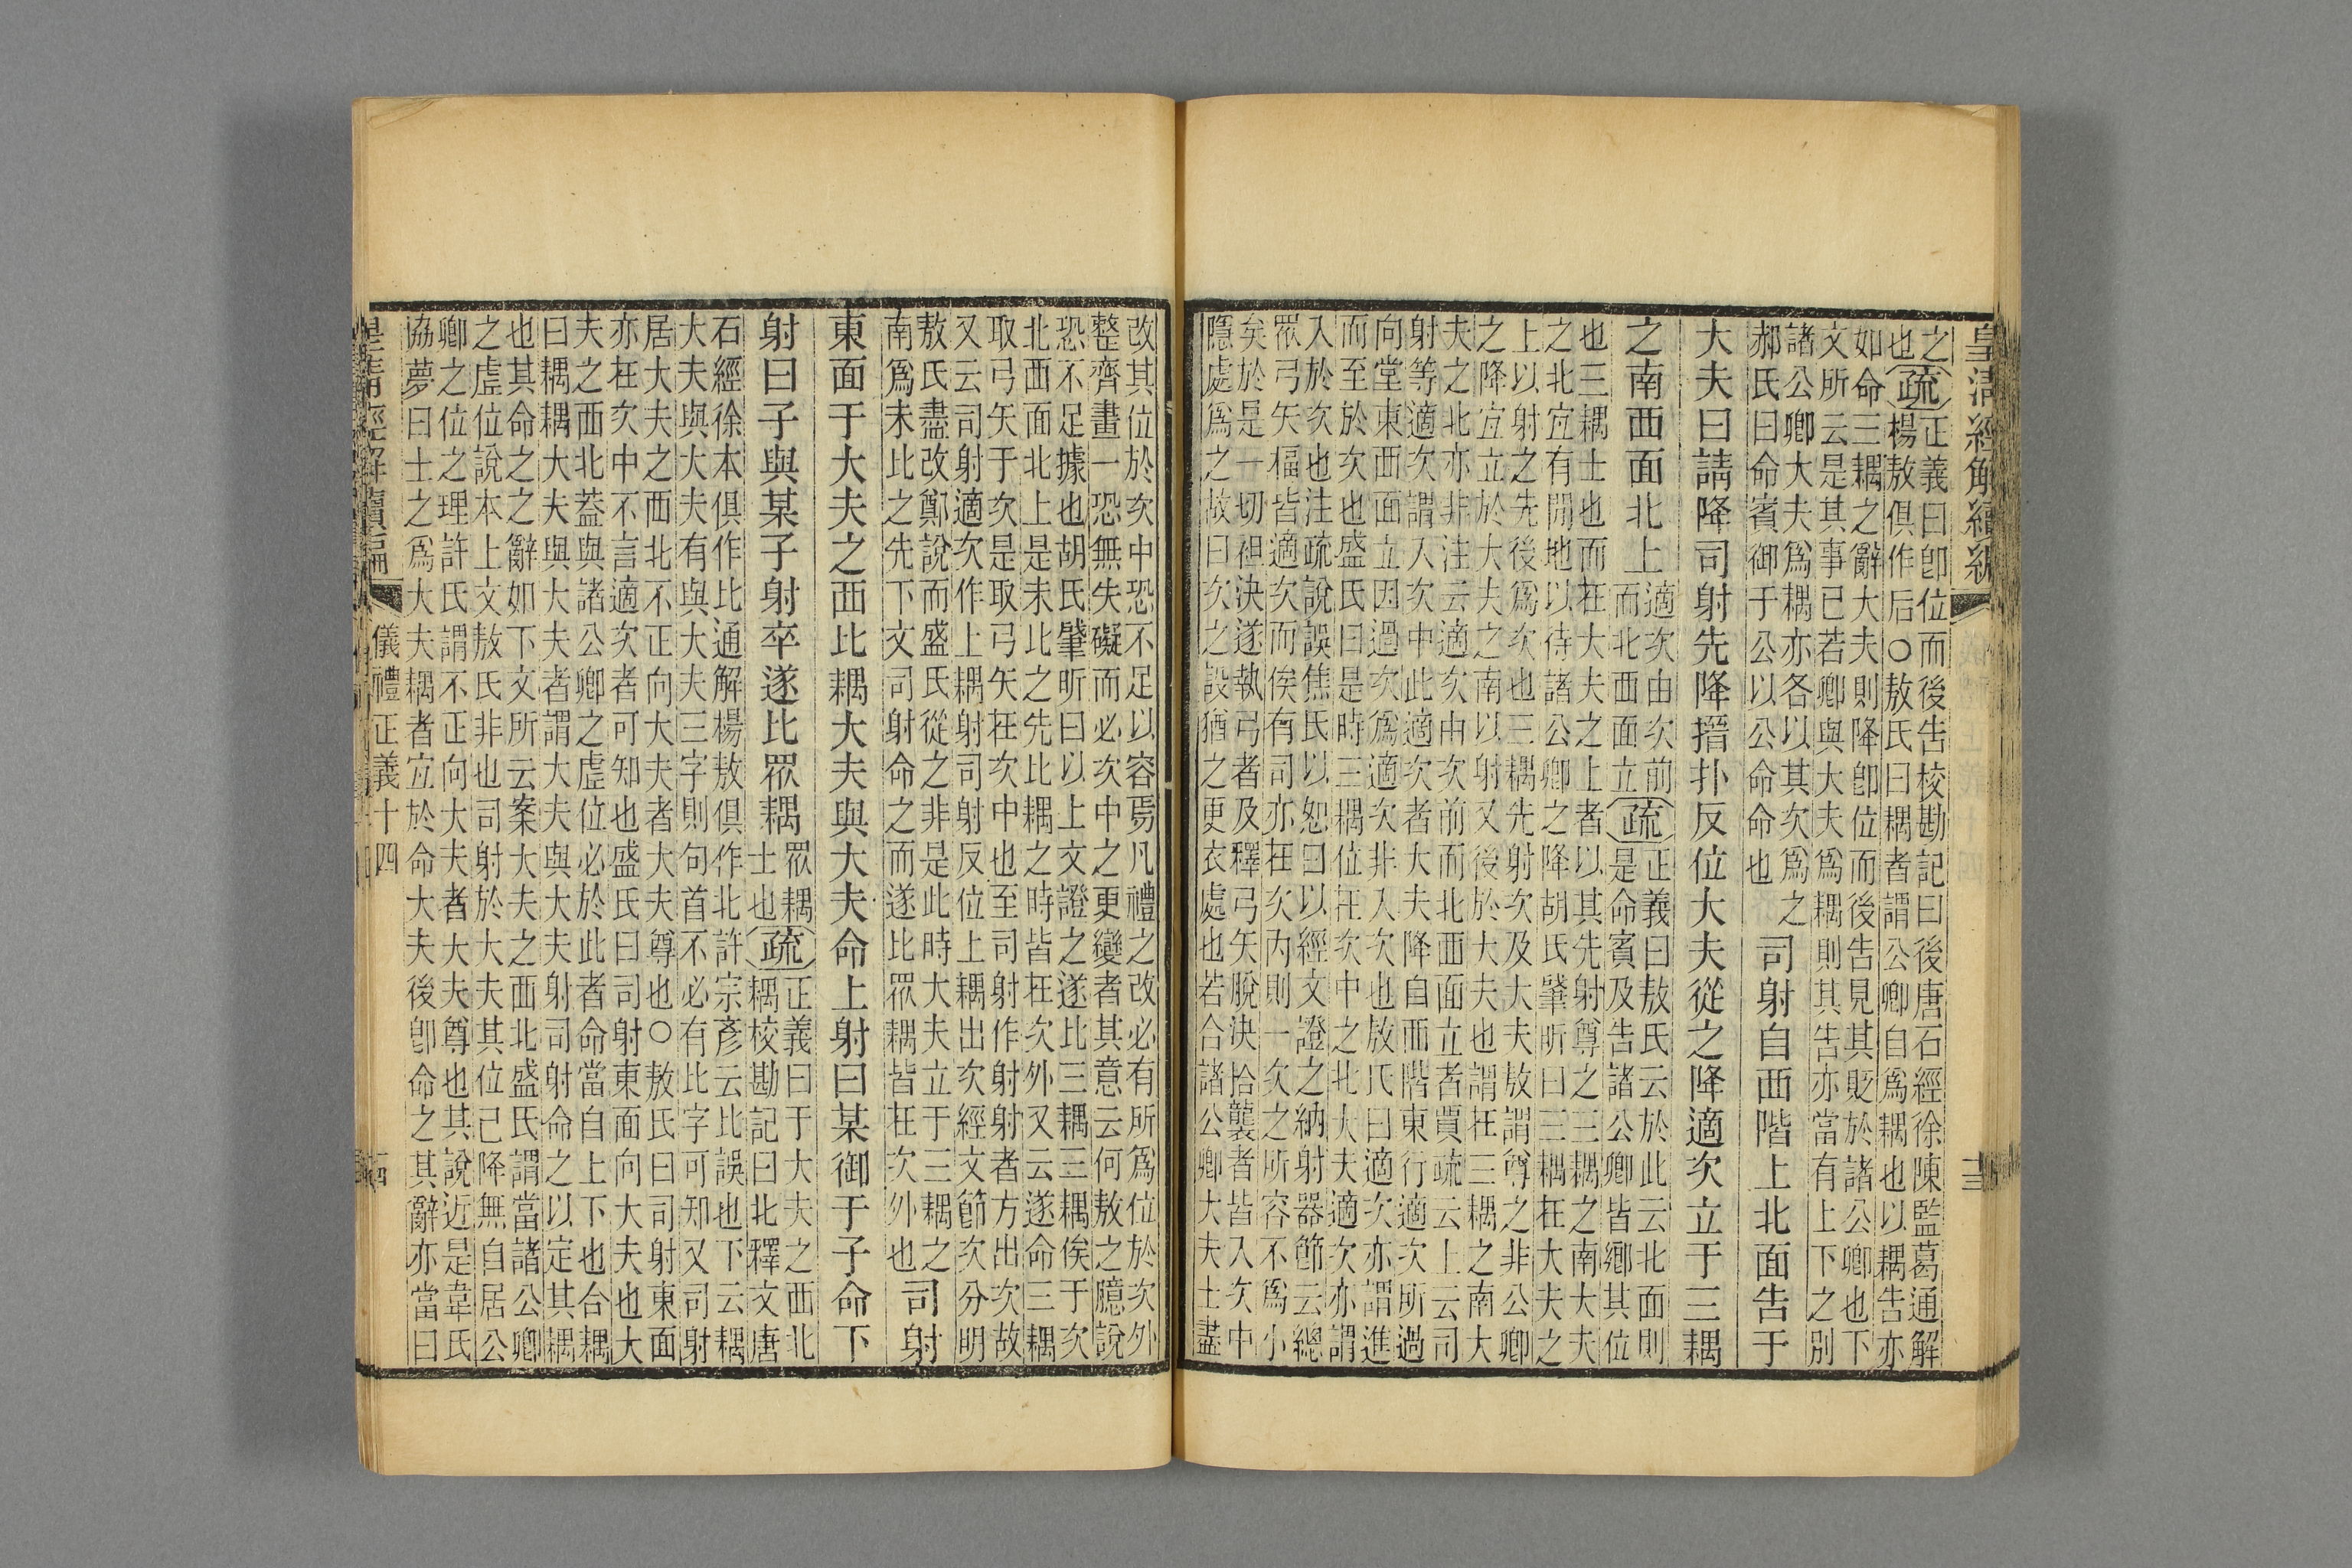 皇清經解續編
之正義曰卽位而後告校勘記曰後唐石經徐陳監葛通解
也疏楊敖俱作后○敖氏曰耦者謂公卿自爲耦也以耦告亦
如命三耦之辭大夫則降卽位而後告見其貶於諸公卿也下
文所云是其事已若卿與大夫爲耦則其告亦當有上下之別
諸公卿大夫爲耦亦各以其次爲之
郝氏曰命賓御于公以公命命也
司射自西階上北面告于
大夫曰請降司射先降搢扑反位大夫從之降適次立于三耦
之南西面北上
適次由次前
而北西面立
疏
正義曰敖氏云於此云北面則
是命賓及告諸公卿皆鄉其位
也三耦士也而在大夫之上者以其先射尊之三耦之南大夫
之北宜有閒地以待諸公卿之降胡氏肇昕曰三耦在大夫之
上以射之先後爲次也三耦先射次及大夫敖謂尊之非公卿
之降宜立於大夫之南以射又後於大夫也謂在三耦之南大
夫之北亦非注云適次由次前而北西面立者賈疏云上云司
射等適次謂入次中此適次者大夫降自西階東行適次所過
向堂東西面立因過次爲適次非入次也敖氏曰適次亦謂進
而至於次也盛氏曰是時三耦位在次中之北大夫適次亦謂
入於次也注疏說誤焦氏以恕曰以經文證之納射器節云總
眾弓矢楅皆適次而俟有司亦在次內則一次之所容不爲小
矣於是一切袒決遂執弓者及釋弓矢脫決拾襲者皆入次中
隱處爲之故曰次之設猶之更衣處也若合諸公卿大夫士盡
改其位於次中恐不足以容焉凡禮之改必有所爲位於次外
整齊畫一恐無失礙而必次中之更變者其意云何敖之臆說
恐不足據也胡氏肇昕曰以上文證之遂比三耦三耦俟于次
北西面北上是未比之先比耦之時皆在次外又云遂命三耦
取弓矢于次是取弓矢在次中也至司射作射射者方出次故
又云司射適次作上耦射司射反位上耦出次經文節次分明
敖氏盡改鄭說而盛氏從之非是此時大夫立于三耦之
南爲未比之先下文司射命之而遂比眾耦皆在次外也
司射
東面于大夫之西比耦大夫與大夫命上射曰某御于子命下
射曰子與某子射卒遂比眾耦
眾耦
士也
疏
正義曰于大夫之西北
耦校勘記曰北釋文唐
石經徐本俱作比通解楊敖俱作北許宗彥云比誤也下云耦
大夫與大夫有與大夫三字則句首不必有比字可知又司射
居大夫之西北不正向大夫者大夫尊也○敖氏曰司射東面
亦在次中不言適次者可知也盛氏曰司射東面向大夫也大
夫之西北蓋與諸公卿之虛位必於此者命當自上下也合耦
曰耦耦大夫與大夫者謂大夫與大夫射司射命之以定其耦
也其命之之辭如下文所云案大夫之西北盛氏謂當諸公卿
之虛位說本上文敖氏非也司射於大夫其位已降無自居公
卿之位之理許氏謂不正向大夫者大夫尊也其說近是韋氏
協夢曰士之爲大夫耦者宜於命大夫後卽命之其辭亦當曰
儀禮正義十四